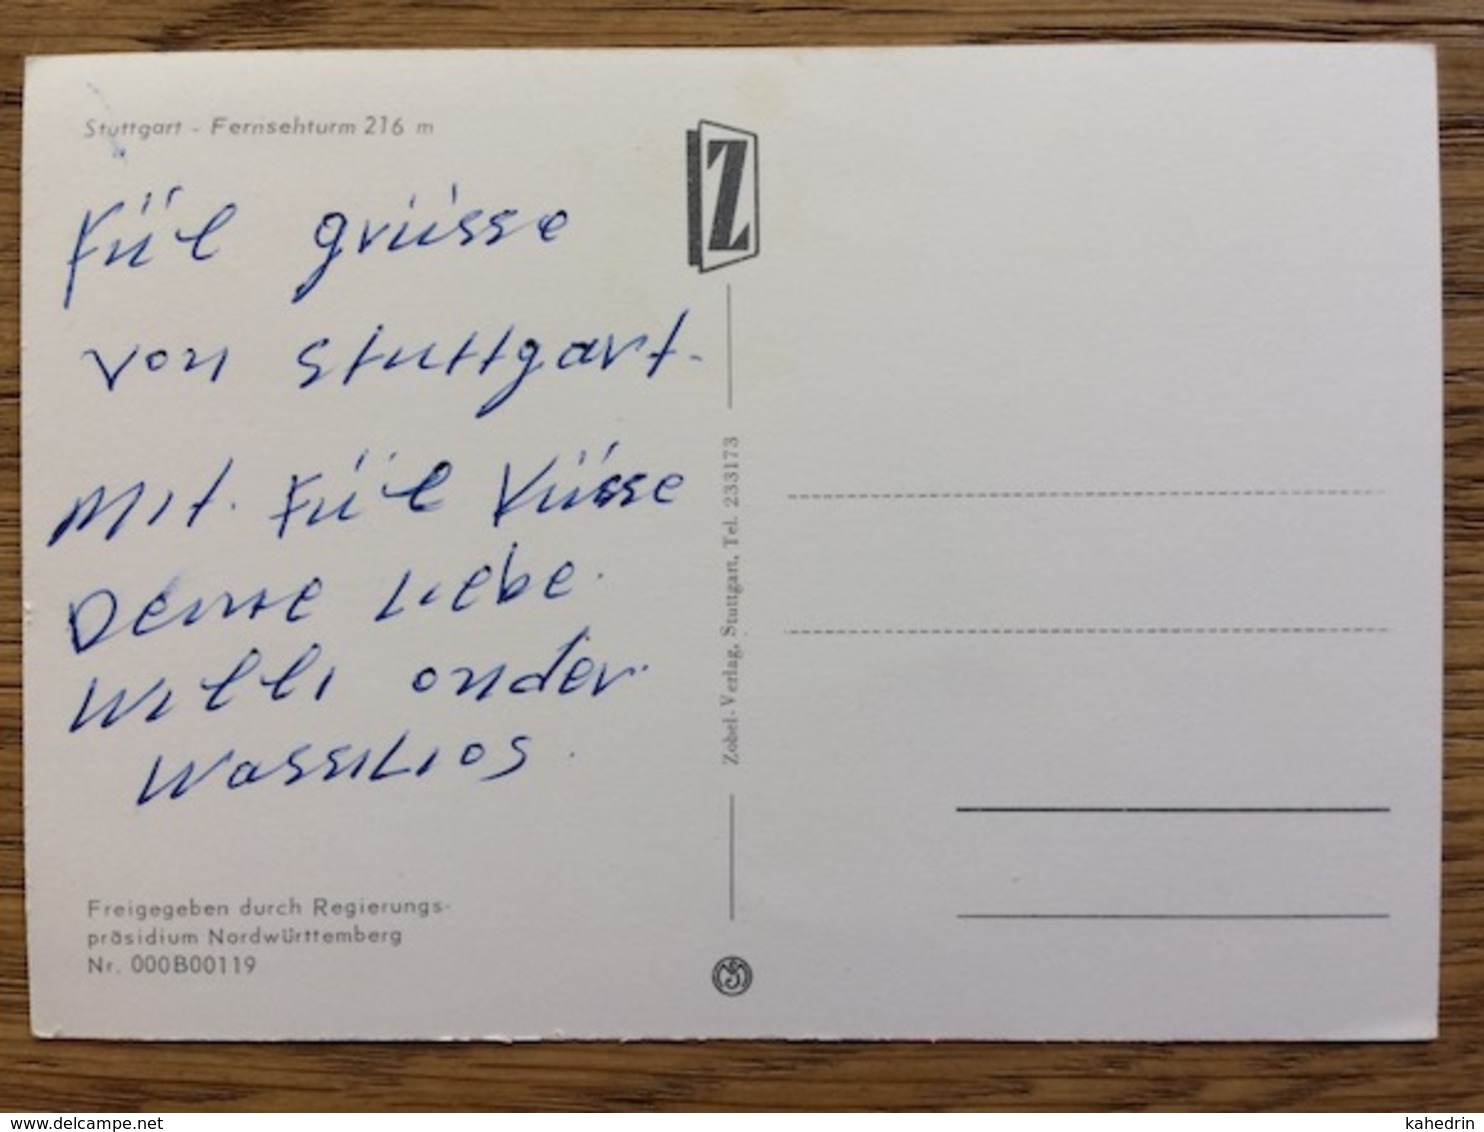 Stuttgart - Fernsehturm 216 m
Fül grüsse
von stuttgart.
Mit. Fül Küsse
Deine Liebe.
Willi onder.
Wassilios.
Freigegeben durch Regierungs-
präsidium Nordwürttemberg
Nr. 000B00119
Z
Zobel-Verlag, Stuttgart, Tel. 233173
www.delcampe.net
kahedrin